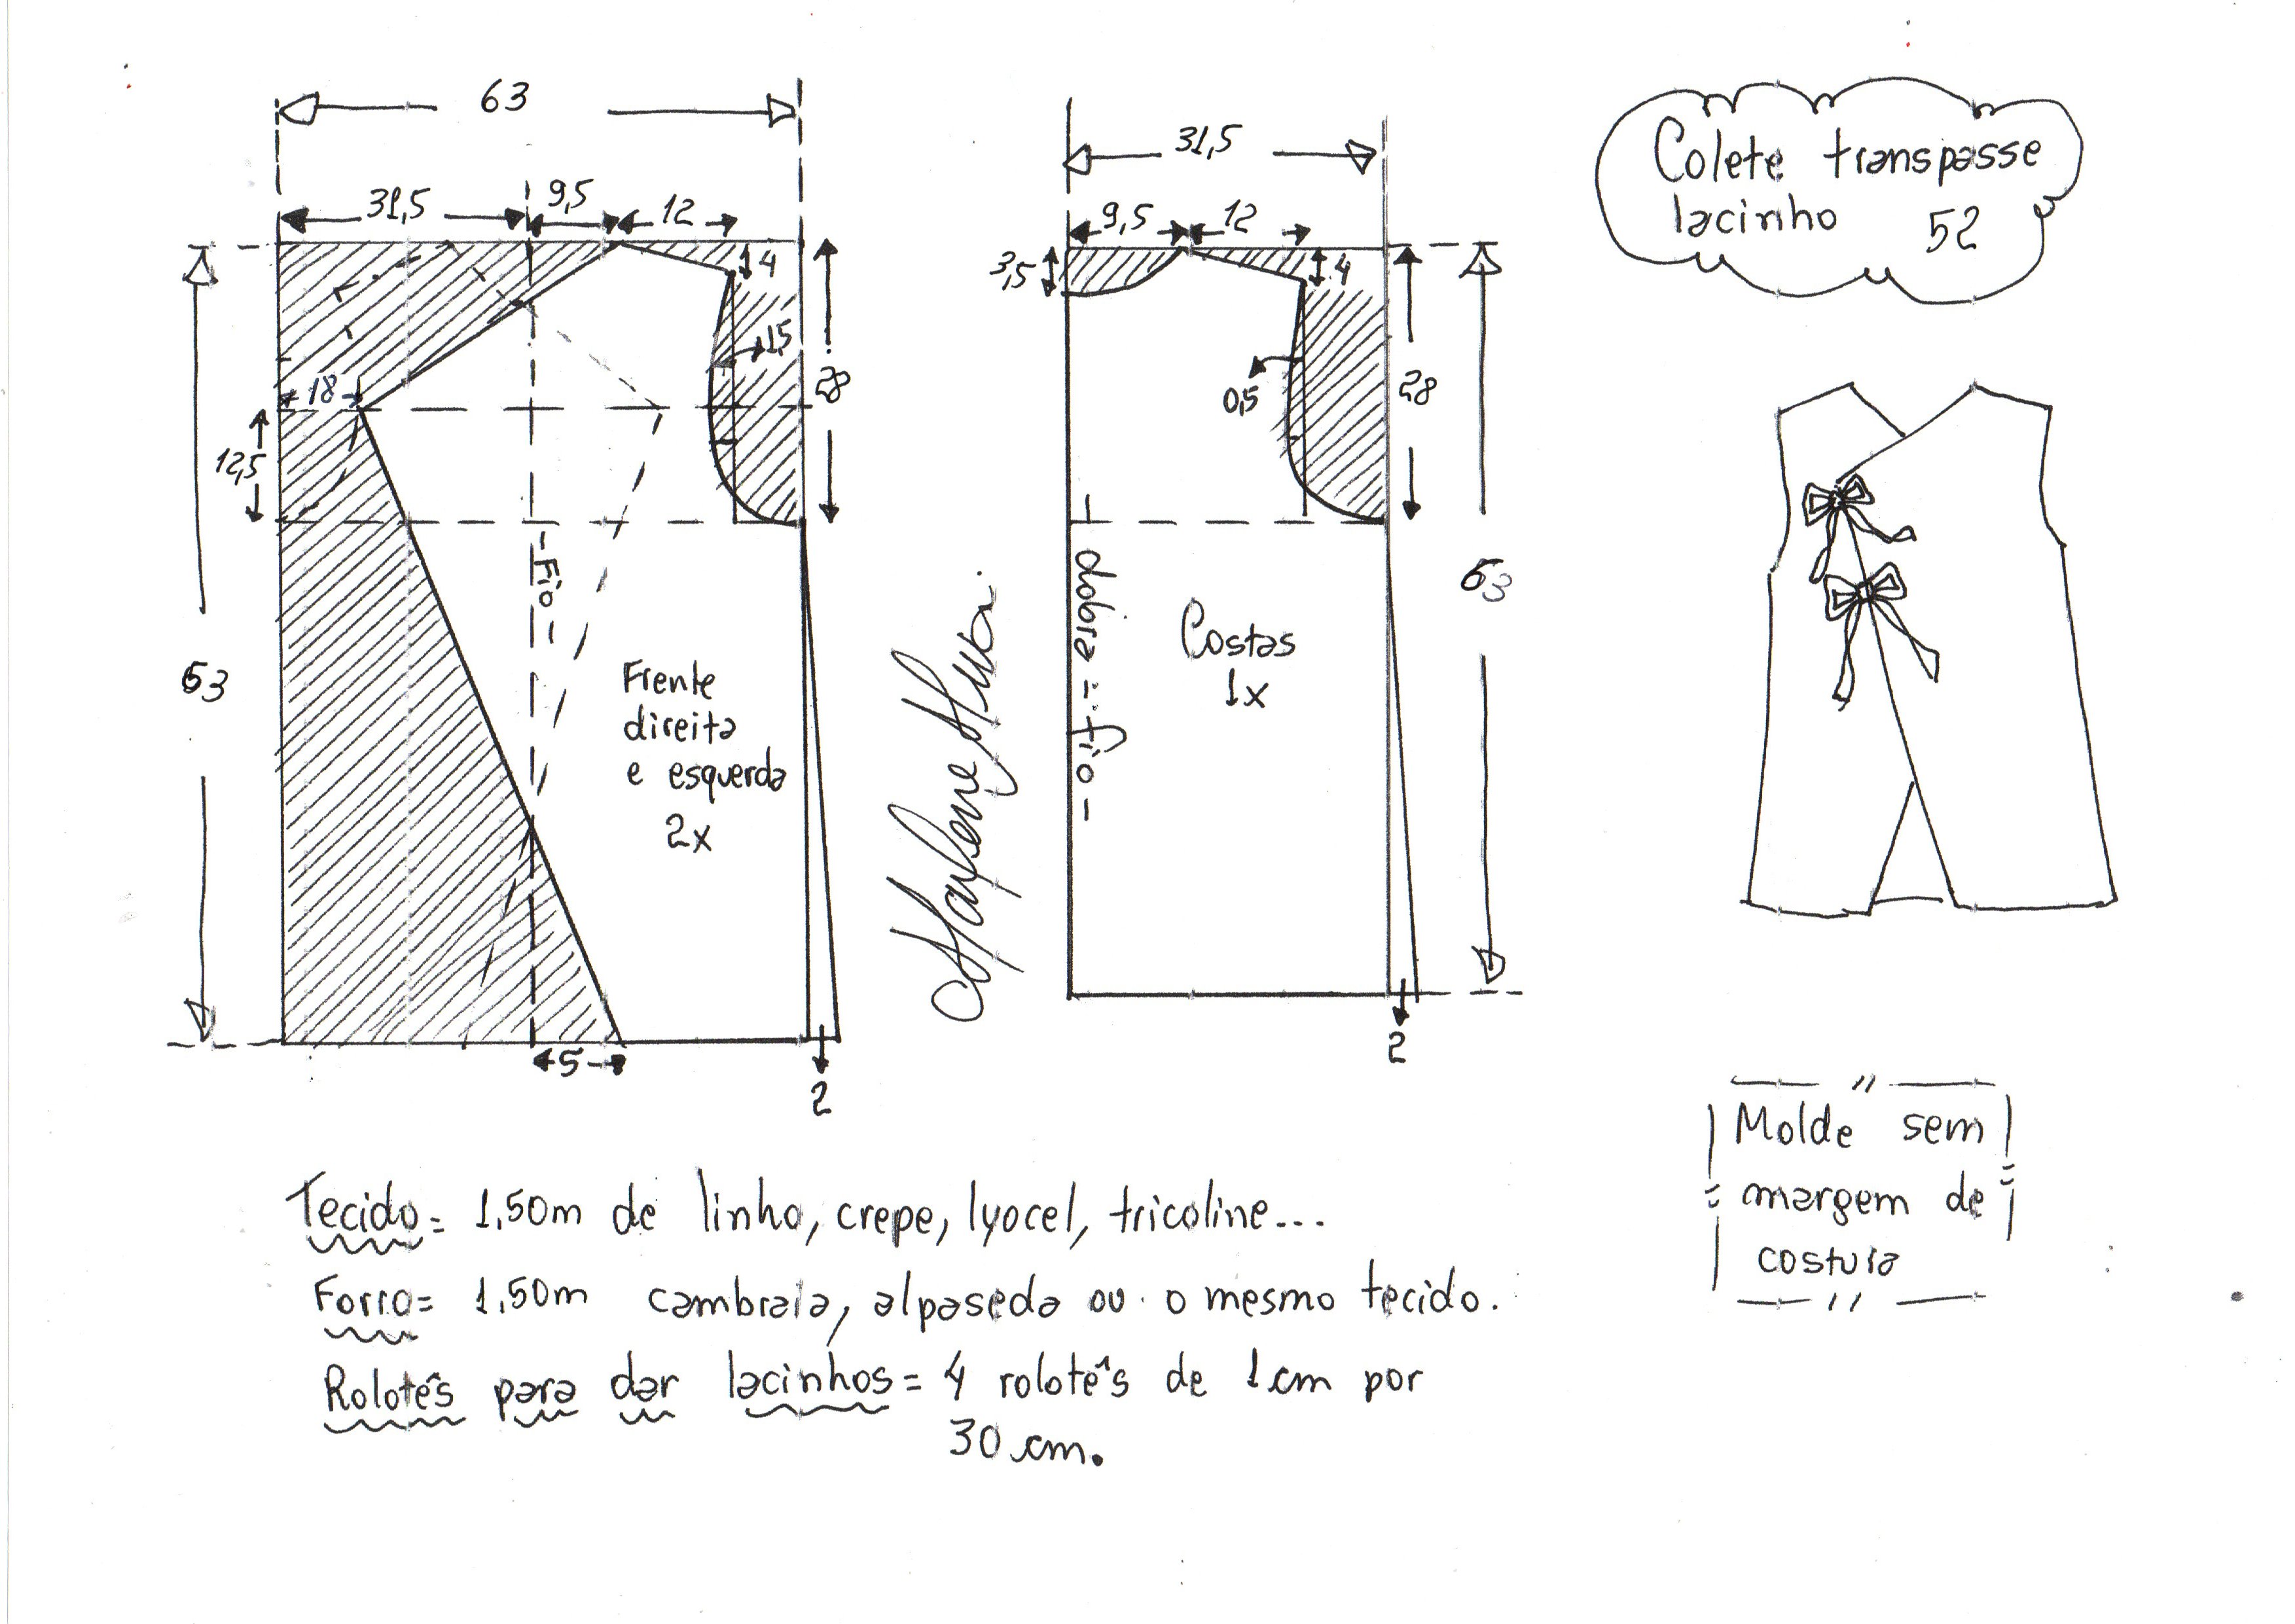 63
31,5
9,5
12
4
1,5
28
18
12,5
63
- Fio -
Frente
direita
e esquerda
2x
5
2
31,5
9,5
12
3,5
4
0,5
28
63
- dobra = fio -
Costas
1x
2
Colete transpasse
lacinho 52
Molde sem
margem de
costura
Tecido = 1,50m de linho, crepe, lyocel, tricoline...
Forro = 1,50m cambraia, alpaseda ou o mesmo tecido.
Rolotês para dar lacinhos = 4 rolotês de 1cm por
30 cm.